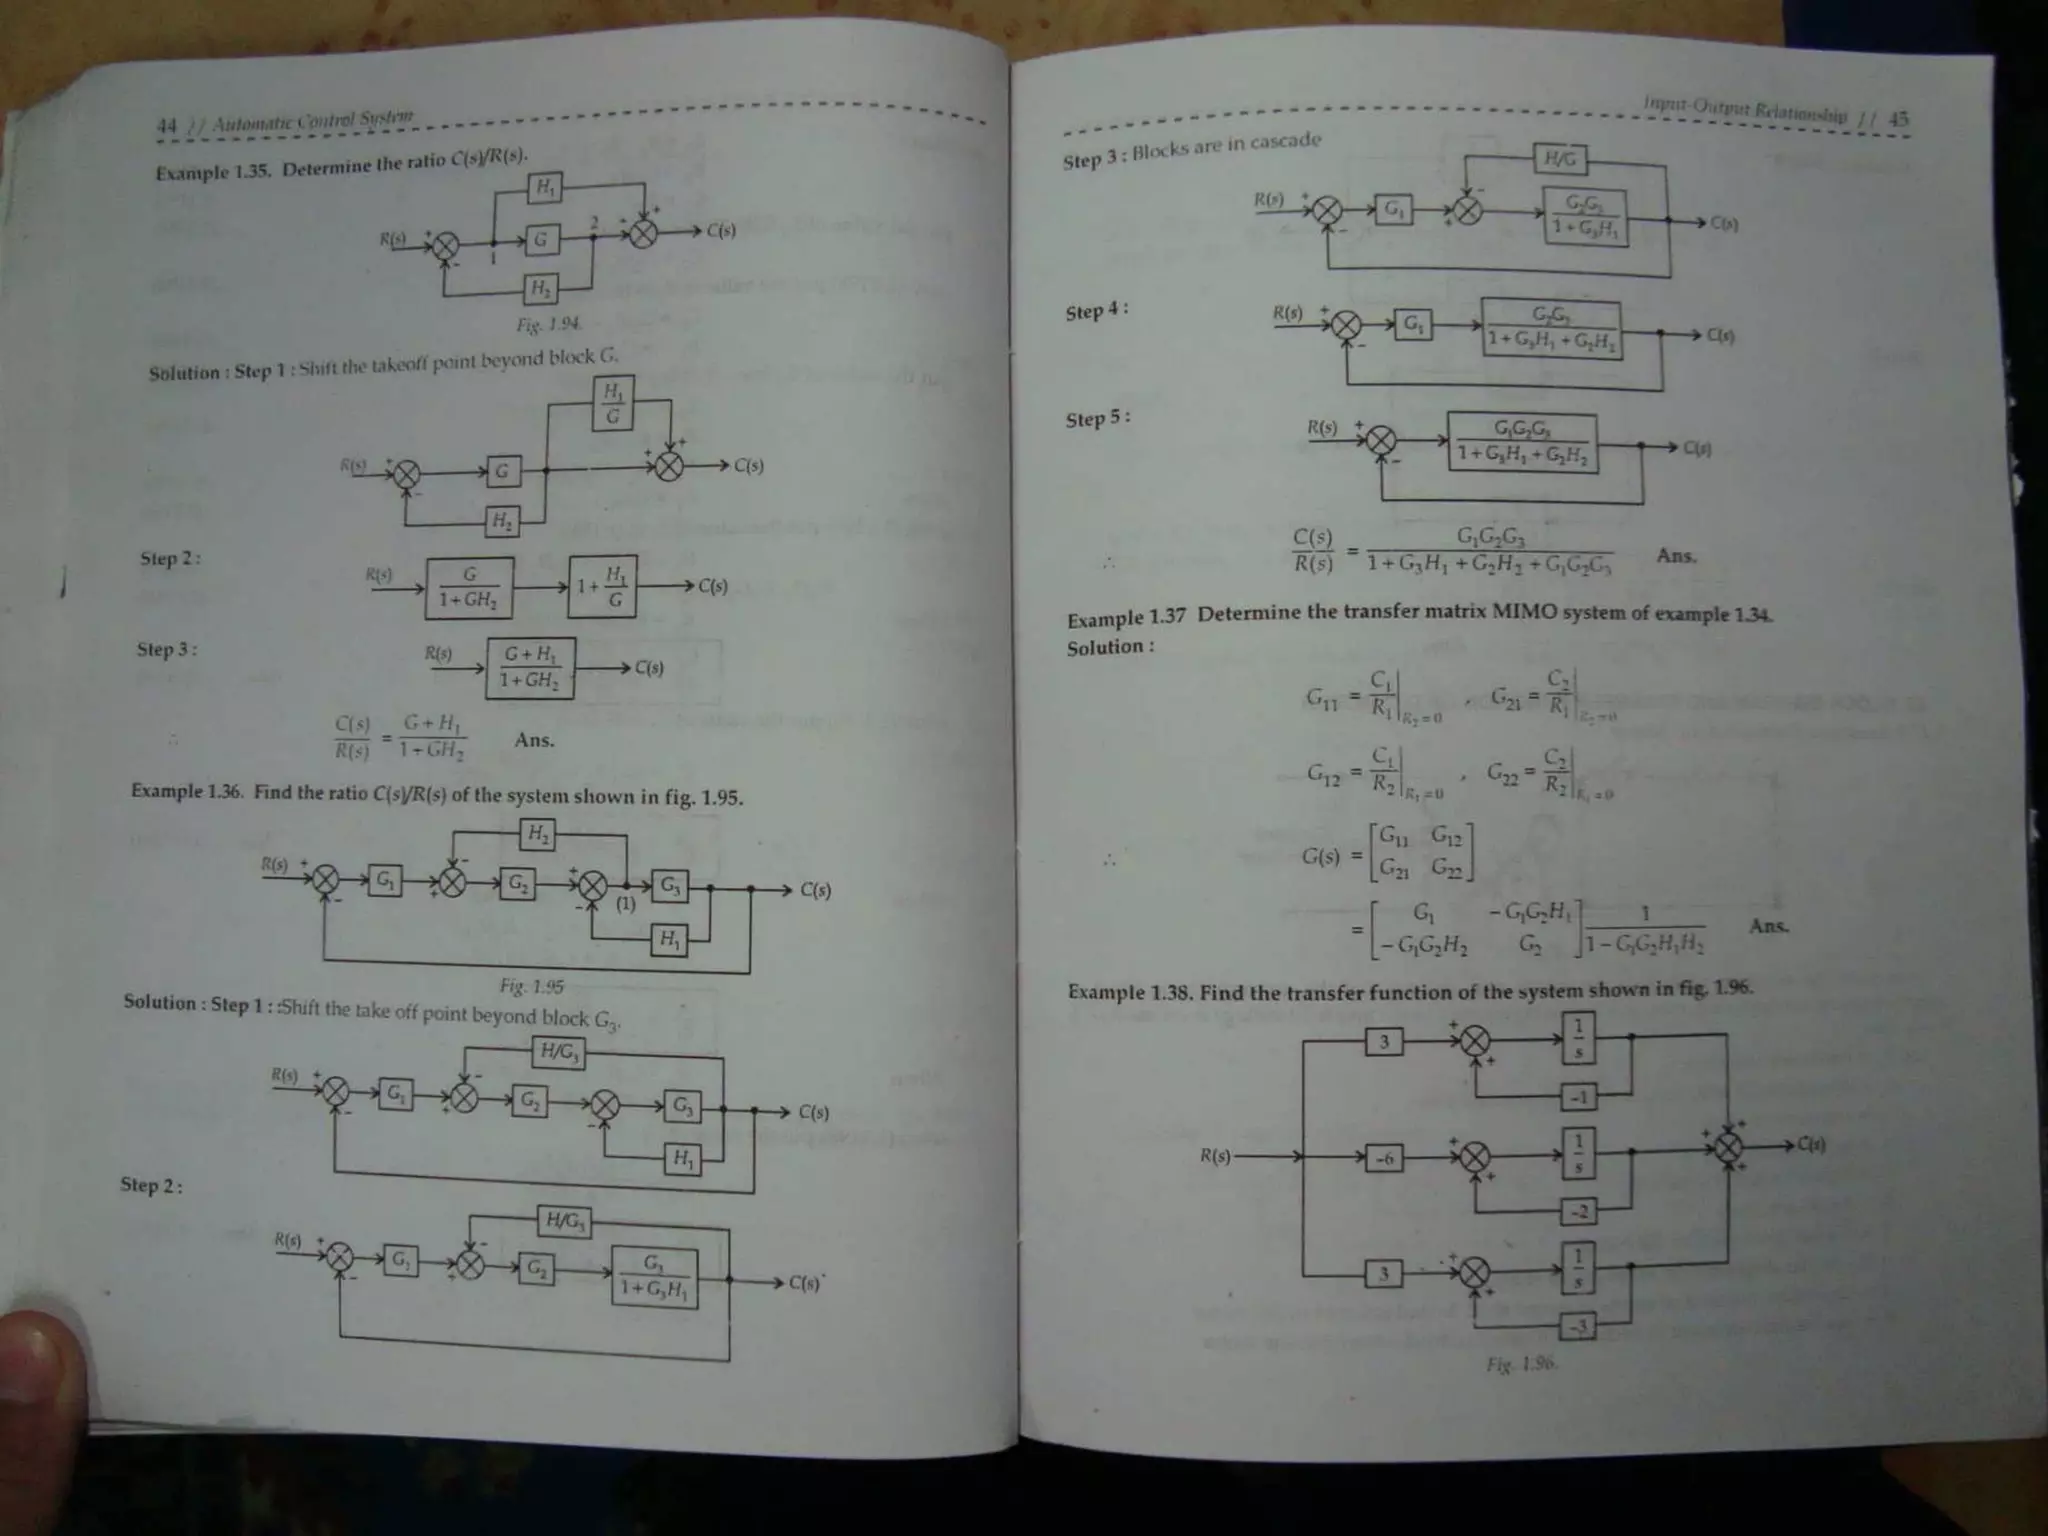 44 // Automatic Control System
Example 1.35. Determine the ratio C(s)/R(s).
H₁
R(s) + − 1 G 2 + + C(s)
H₂
Fig. 1.94.
Solution : Step 1 : Shift the takeoff point beyond block G.
H₁/G
R(s) + − G + + C(s)
H₂
Step 2 :
R(s) G/(1+GH₂) 1+H₁/G C(s)
Step 3 :
R(s) (G+H₁)/(1+GH₂) C(s)
∴ C(s)/R(s) = (G+H₁)/(1+GH₂) Ans.
Example 1.36. Find the ratio C(s)/R(s) of the system shown in fig. 1.95.
H₂
R(s) + − G₁ + − G₂ + − (1) G₃ C(s)
H₁
Fig. 1.95
Solution : Step 1 : :Shift the take off point beyond block G₃.
H/G₃
R(s) + − G₁ + − G₂ − G₃ C(s)
H₁
Step 2 :
H/G₃
R(s) + − G₁ + − G₂ G₃/(1+G₃H₁) C(s)
Input-Output Relationship // 45
Step 3 : Blocks are in cascade
H/G
R(s) + − G₁ + − G₂G₃/(1+G₃H₁) C(s)
Step 4 :
R(s) + − G₁ G₂G₃/(1+G₃H₁+G₂H₂) C(s)
Step 5 :
R(s) + − G₁G₂G₃/(1+G₃H₁+G₂H₂) C(s)
∴ C(s)/R(s) = G₁G₂G₃/(1+G₃H₁+G₂H₂+G₁G₂G₃) Ans.
Example 1.37 Determine the transfer matrix MIMO system of example 1.34.
Solution :
G₁₁ = C₁/R₁|R₂=0 , G₂₁ = C₂/R₁|R₂=0
G₁₂ = C₁/R₂|R₁=0 , G₂₂ = C₂/R₂|R₁=0
∴ G(s) = [G₁₁ G₁₂
G₂₁ G₂₂]
= [G₁ −G₁G₂H₁
−G₁G₂H₂ G₂] 1/(1−G₁G₂H₁H₂) Ans.
Example 1.38. Find the transfer function of the system shown in fig. 1.96.
3 + + 1/s
−1
R(s) −6 + + 1/s + + + C(s)
−2
3 + + 1/s
−3
Fig. 1.96.